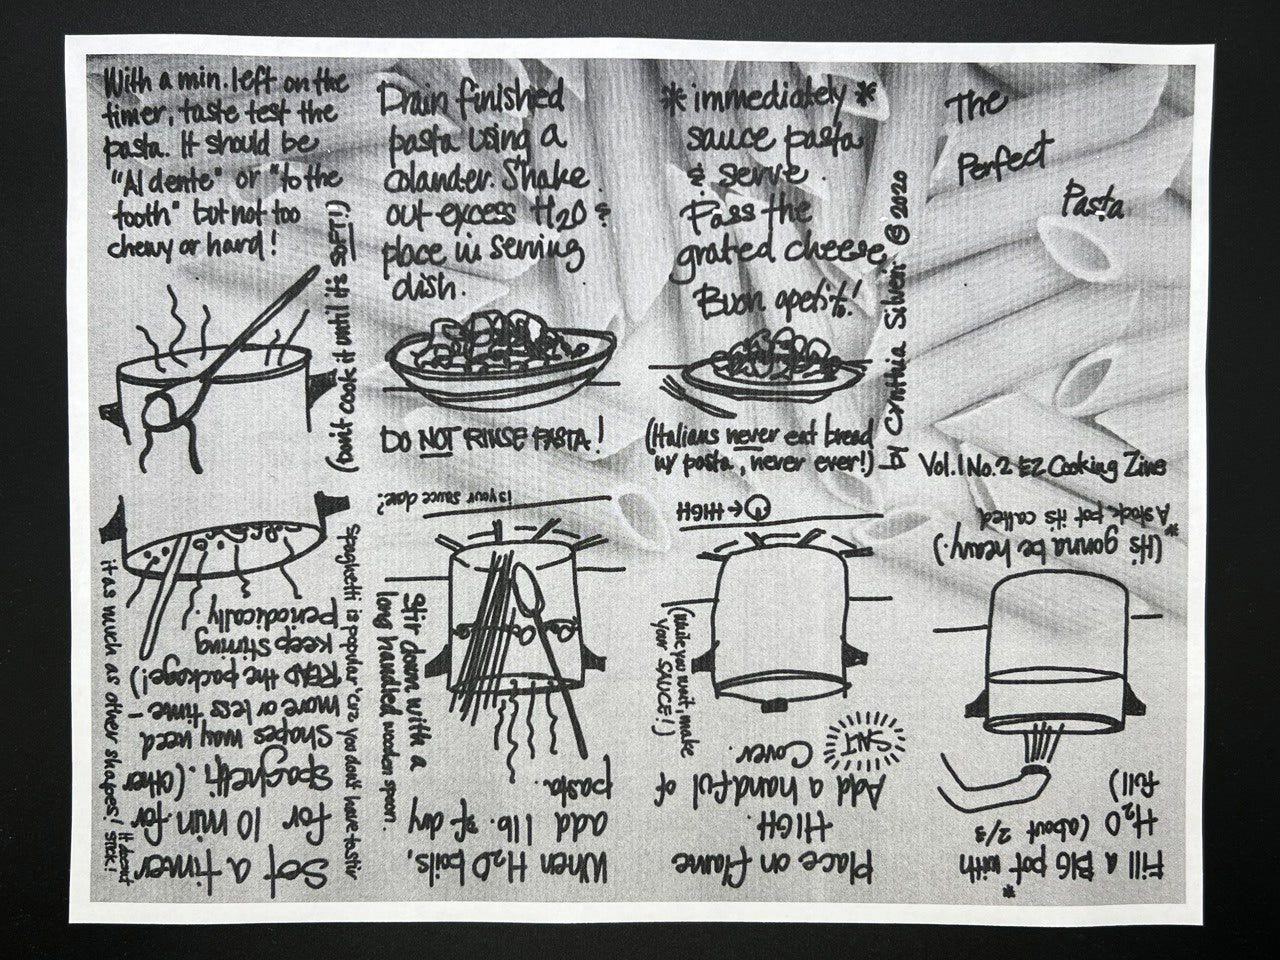 The
Perfect
Pasta
Vol. 1 No. 2 EZ Cooking Zine
Fill a BIG pot* with
H₂O (about 2/3
full)
(It's gonna be heavy.)
*A stock pot it's called
Place on flame
HIGH.
Add a handful of
SALT
Cover.
(While you wait, make
your SAUCE!)
→ HIGH
When H₂O boils,
add 1 lb. of dry
pasta.
Stir down with a
long handled wooden spoon.
is your sauce done?
Set a timer
for 10 min for
Spaghetti. (Other
Shapes may need
more or less time –
READ the package!)
Keep stirring
periodically.
Spaghetti is popular 'cuz you don't have to stir
it as much as other shapes! It doesn't
stick!
With a min. left on the
timer, taste test the
pasta. It should be
"Al dente" or "to the
tooth" but not too
chewy or hard!
(Don't cook it until it's SOFT!)
Drain finished
pasta using a
colander. Shake
out excess H₂O &
place in serving
dish.
DO NOT RINSE PASTA!
*immediately*
sauce pasta
& serve.
Pass the
grated cheese.
Buon apetito!
(Italians never eat bread
w/ pasta, never ever!)
by Cynthia Silveri © 2020